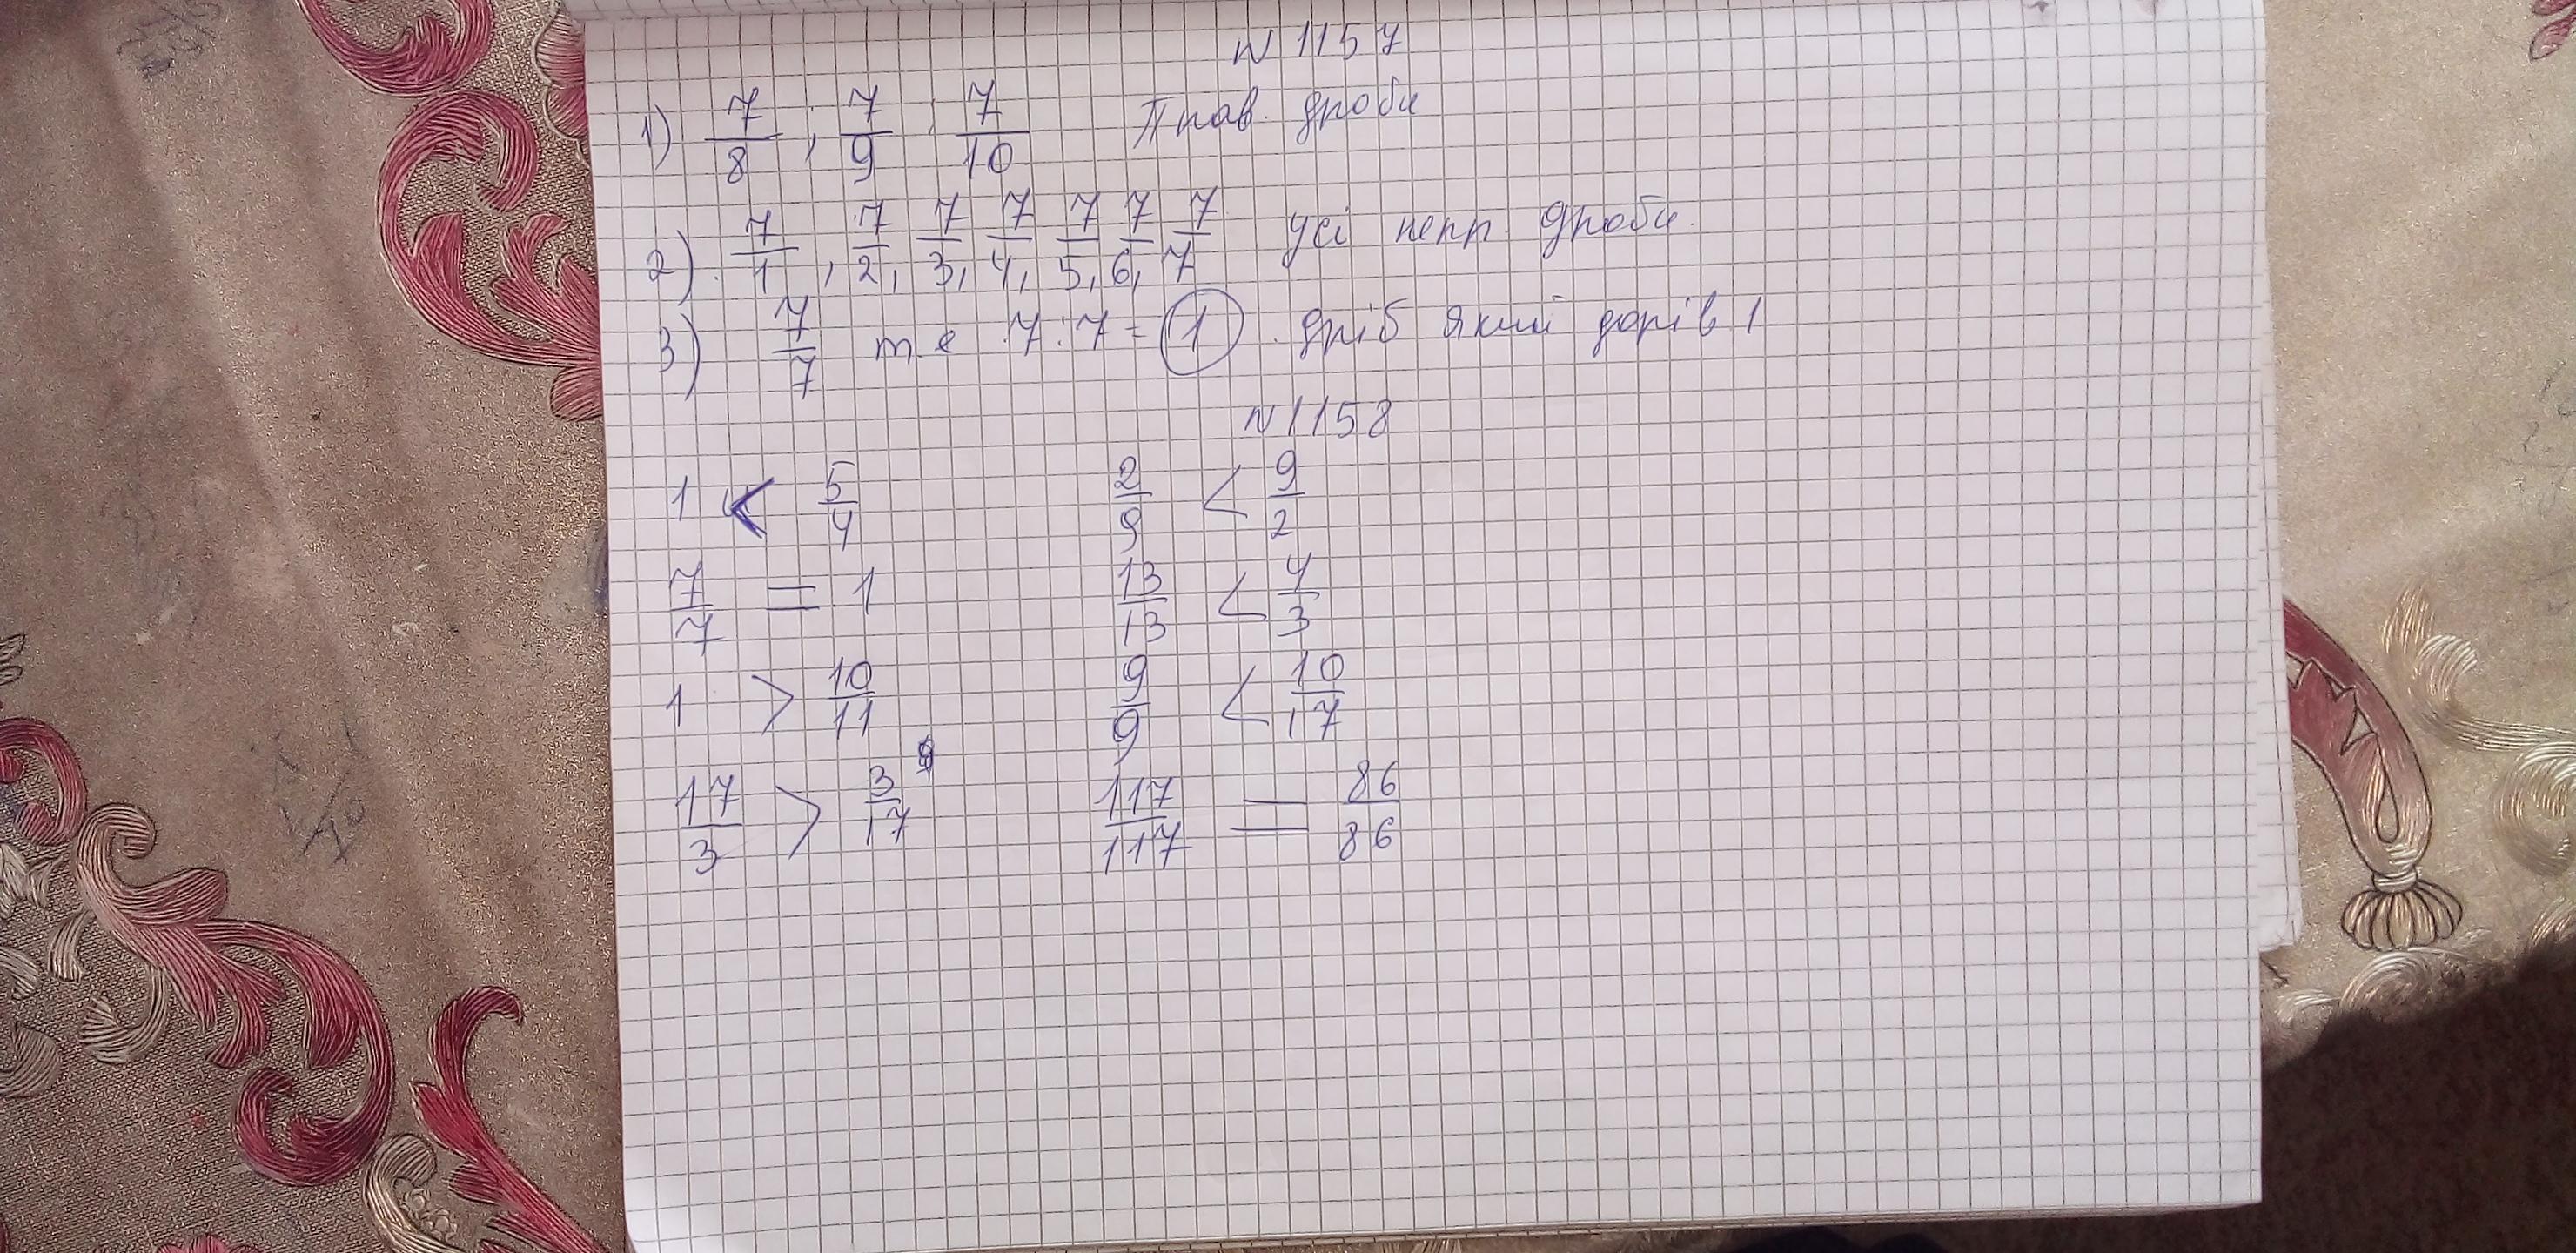 N 1157
1) 7/8, 7/9, 7/10 Прав. дроби
2). 7/1, 7/2, 7/3, 7/4, 7/5, 7/6, 7/7 усі непр дроби.
3) 7/7 т е 7:7 = 1. дріб який дорів 1
N 1158
1 < 5/4 2/9 < 9/2
7/7 = 1 13/13 < 4/3
1 > 10/11 9/9 < 10/17
17/3 > 3/17 117/117 = 86/86